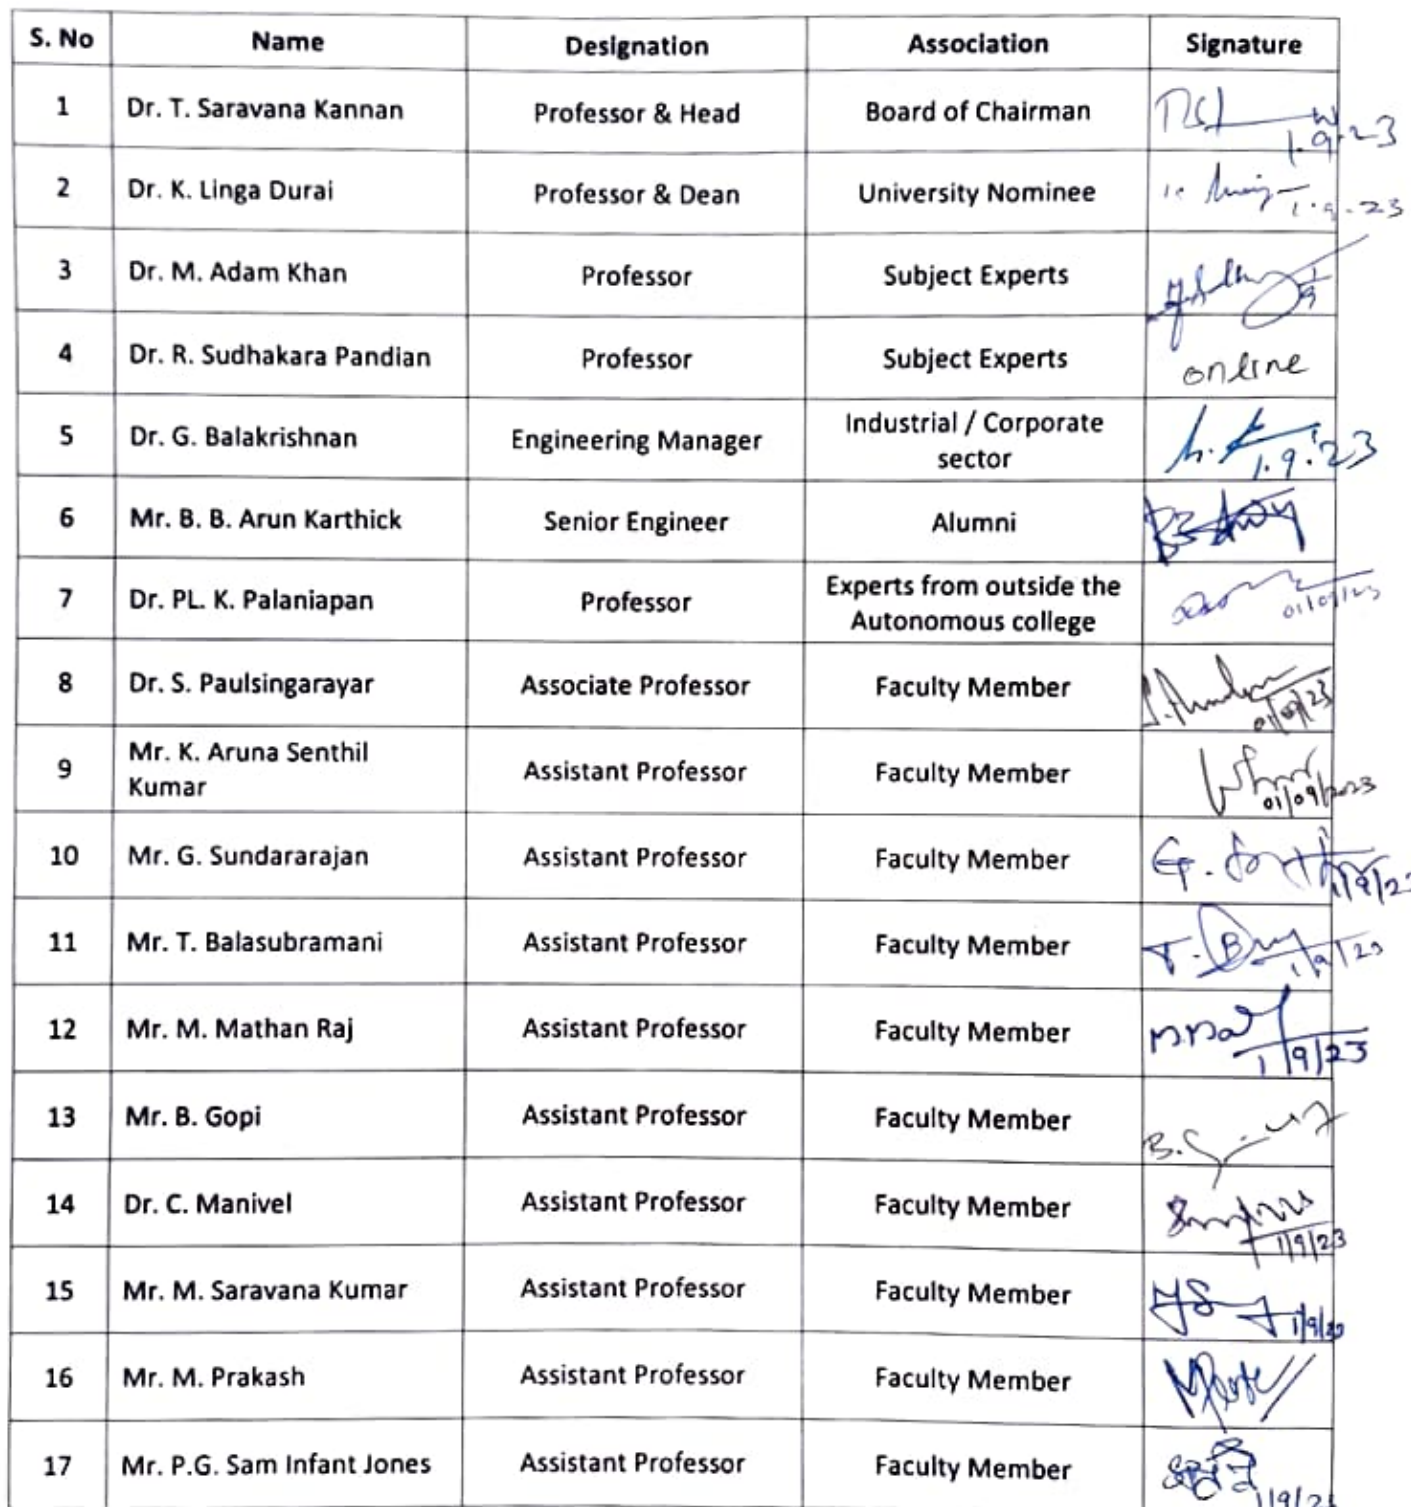 S. No Name Designation Association Signature
1 Dr. T. Saravana Kannan Professor & Head Board of Chairman
1.9.23
2 Dr. K. Linga Durai Professor & Dean University Nominee
1.9.23
3 Dr. M. Adam Khan Professor Subject Experts
1/9
4 Dr. R. Sudhakara Pandian Professor Subject Experts online
5 Dr. G. Balakrishnan Engineering Manager Industrial / Corporate
sector
1.9.'23
6 Mr. B. B. Arun Karthick Senior Engineer Alumni
7 Dr. PL. K. Palaniapan Professor Experts from outside the
Autonomous college
01/09/23
8 Dr. S. Paulsingarayar Associate Professor Faculty Member
01/09/23
9 Mr. K. Aruna Senthil
Kumar Assistant Professor Faculty Member
01/09/2023
10 Mr. G. Sundararajan Assistant Professor Faculty Member G.
1/9/23
11 Mr. T. Balasubramani Assistant Professor Faculty Member T. B
1/9/23
12 Mr. M. Mathan Raj Assistant Professor Faculty Member
1/9/23
13 Mr. B. Gopi Assistant Professor Faculty Member B.
14 Dr. C. Manivel Assistant Professor Faculty Member
1/9/23
15 Mr. M. Saravana Kumar Assistant Professor Faculty Member
1/9/23
16 Mr. M. Prakash Assistant Professor Faculty Member
17 Mr. P.G. Sam Infant Jones Assistant Professor Faculty Member
1/9/23